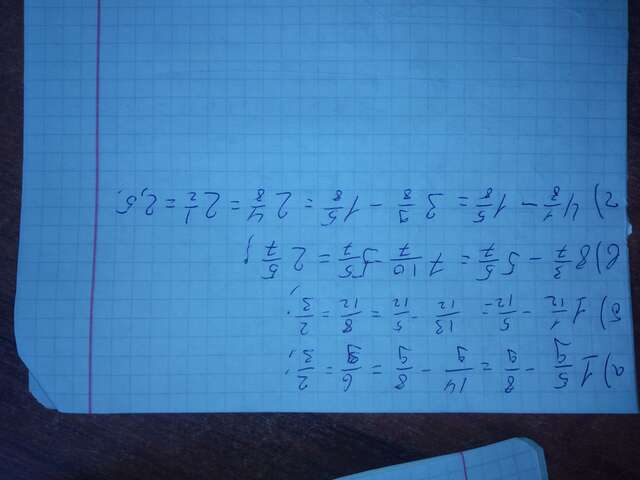 а) 1 5/9 - 8/9 = 14/9 - 8/9 = 6/9 = 2/3;
б) 1 1/12 - 5/12 = 13/12 - 5/12 = 8/12 = 2/3;
в) 8 3/7 - 5 5/7 = 7 10/7 - 5 5/7 = 2 5/7;
г) 4 1/8 - 1 5/8 = 3 9/8 - 1 5/8 = 2 4/8 = 2 1/2 = 2,5.